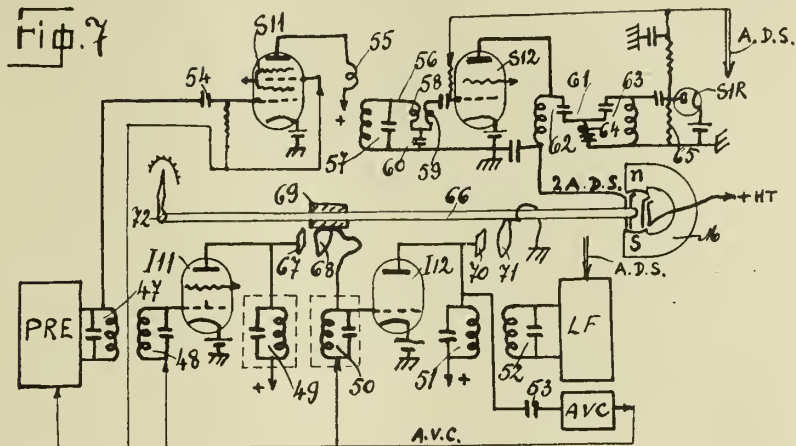 Fig.7
S11
55
54
56
58
S12
61
63
A.D.S.
S1R
57
60
59
62
64
65
+
2 A.D.S.
n
S
+HT
16
72
69
66
A.D.S.
I11
67
68
I12
70
71
PRE
47
48
49
50
51
52
LF
+
+
53
AVC
A.V.C.